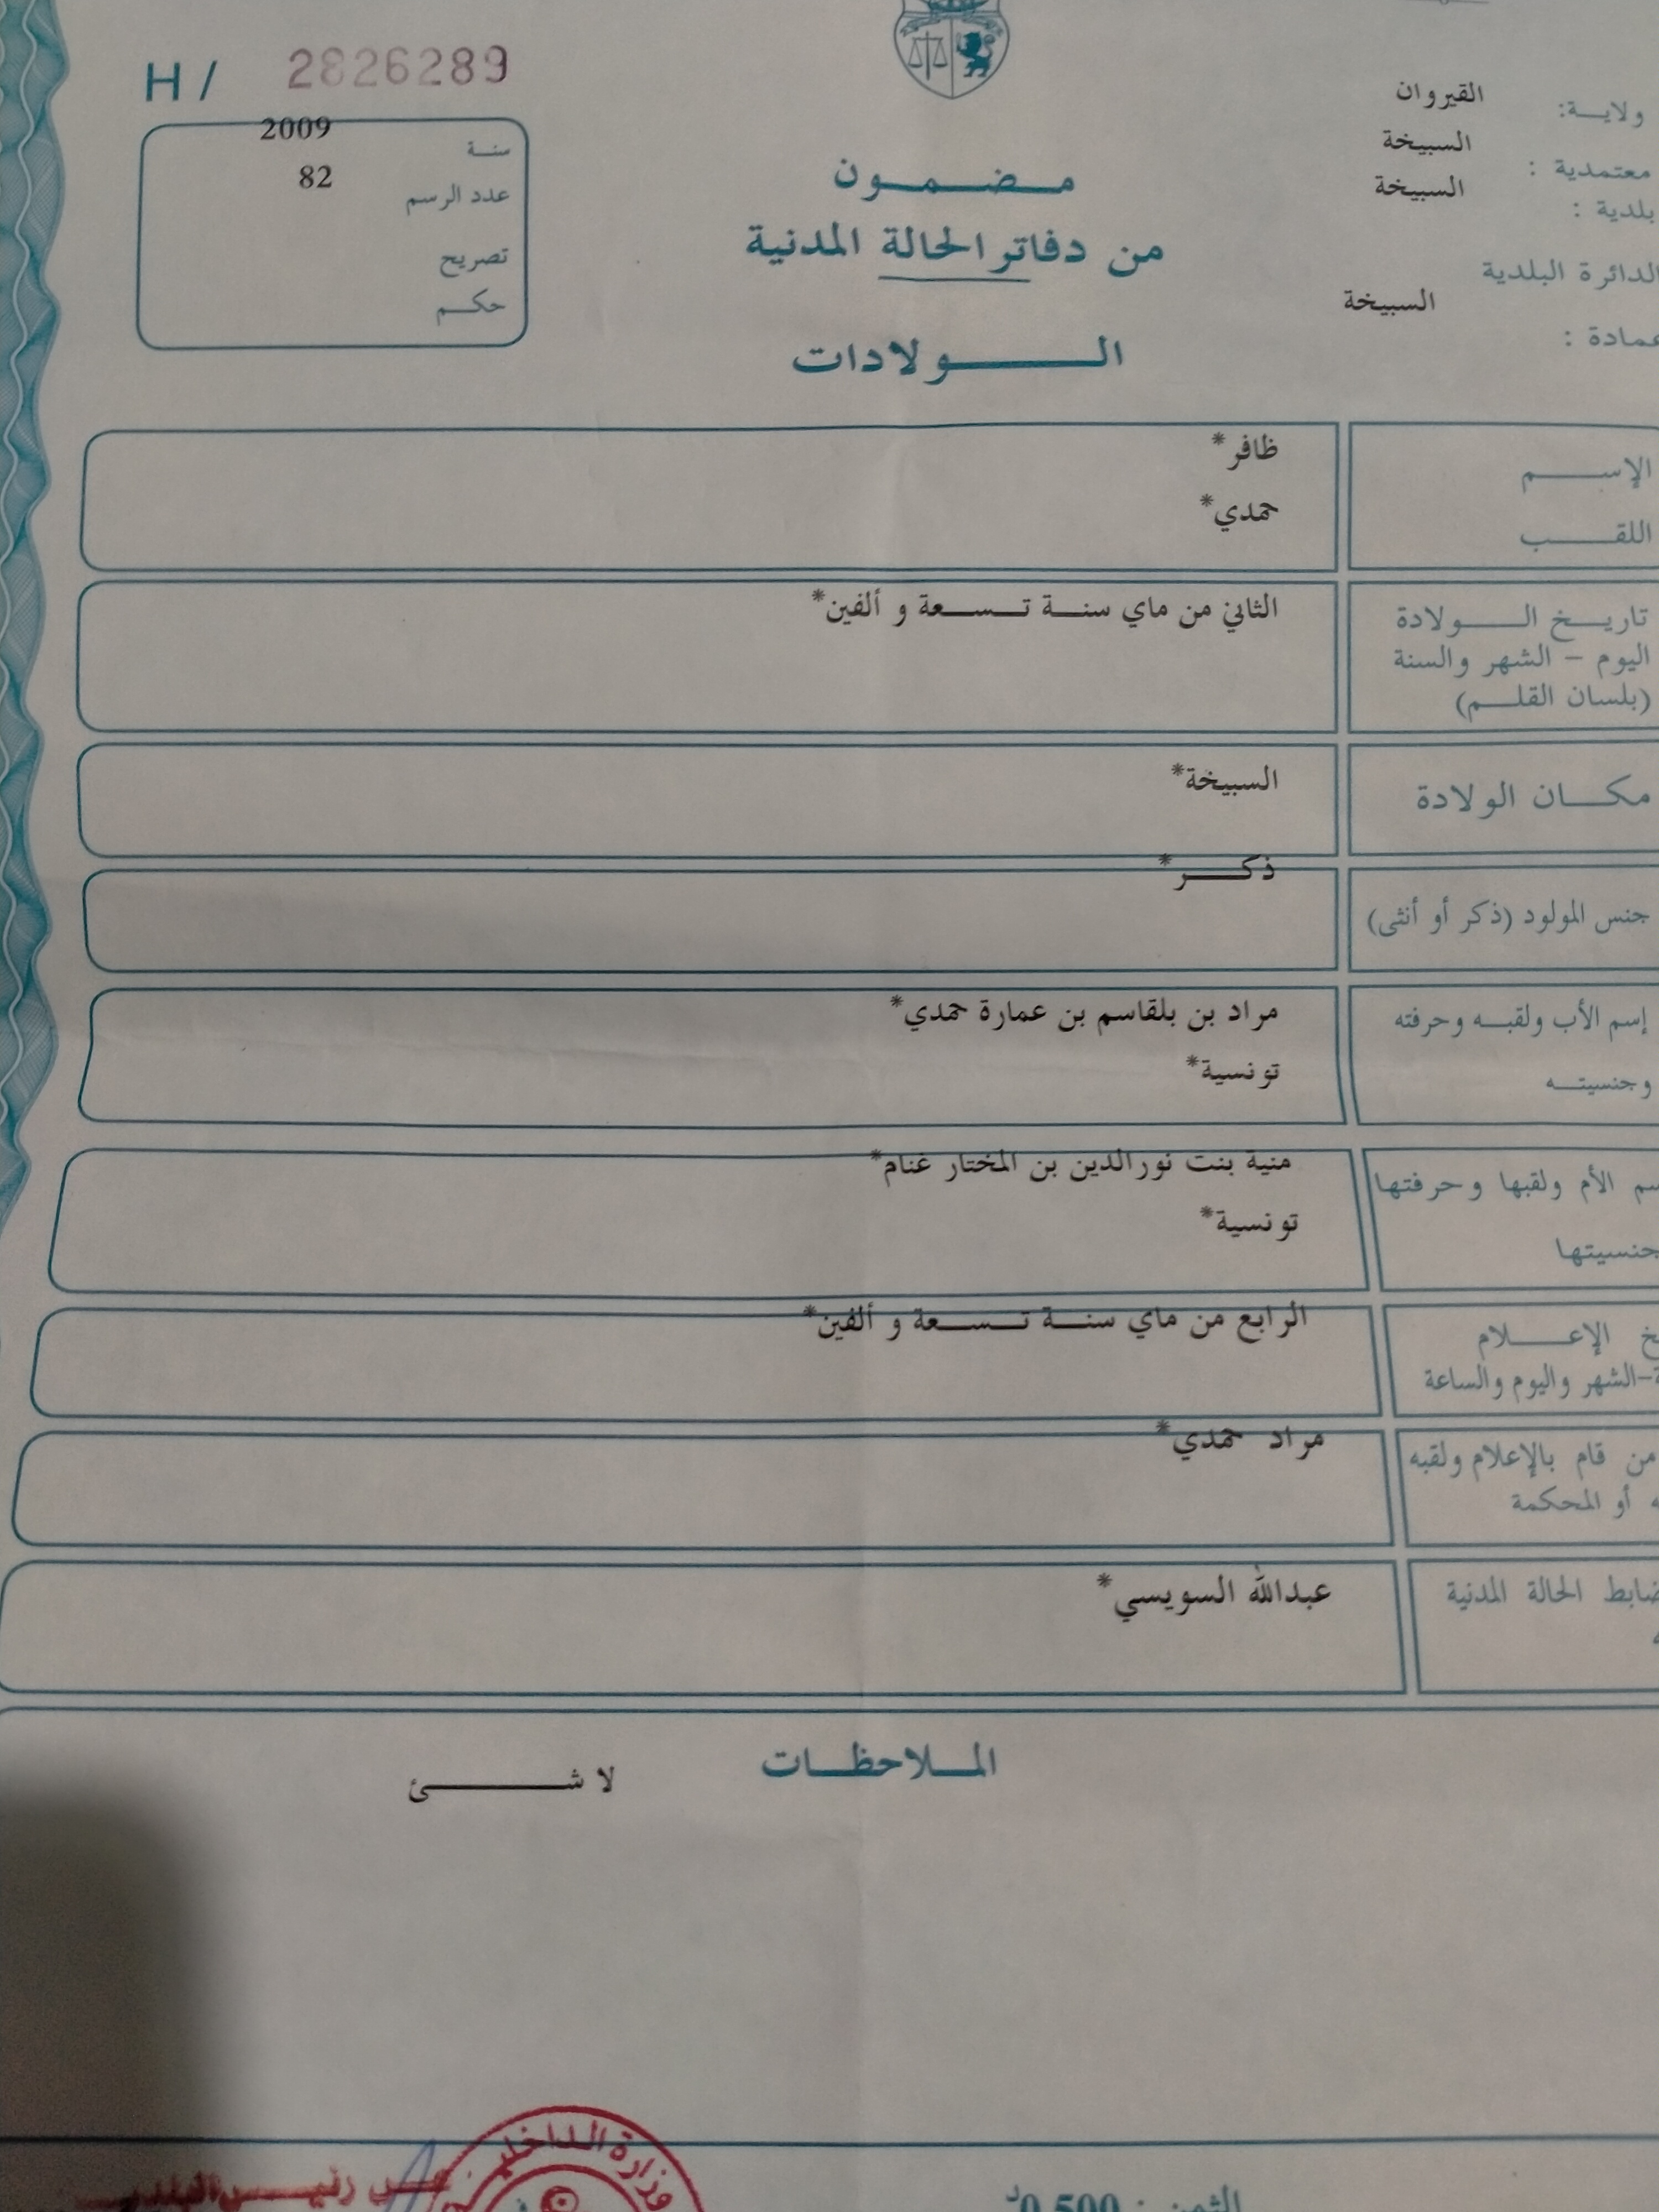 H / 2826289
ولاية: القيروان
معتمدية : السبيخة
بلدية : السبيخة
الدائرة البلدية
عمادة : السبيخة
سنة 2009
عدد الرسم 82
تصريح
حكم
مضمون
من دفاتر الحالة المدنية
الولادات
الإسم ظافر*
اللقب حمدي*
تاريخ الولادة الثاني من ماي سنة تسعة و ألفين*
اليوم – الشهر والسنة
(بلسان القلم)
مكان الولادة السبيخة*
جنس المولود (ذكر أو أنثى) ذكر*
إسم الأب ولقبه وحرفته مراد بن بلقاسم بن عمارة حمدي*
وجنسيته تونسية*
سم الأم ولقبها وحرفتها منية بنت نورالدين بن المختار غنام*
جنسيتها تونسية*
خ الإعلام الرابع من ماي سنة تسعة و ألفين*
ة-الشهر واليوم والساعة
من قام بالإعلام ولقبه مراد حمدي*
ه أو المحكمة
ضابط الحالة المدنية عبدالله السويسي*
الملاحظات
لا شئ
وزارة الداخلية
عن رئيس البلدية
الثمن : 0,500د